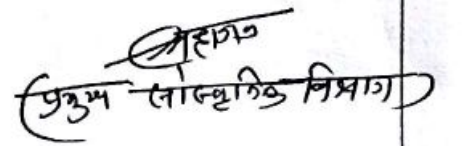 महाजन
(प्रमुख सांस्कृतिक विभाग)